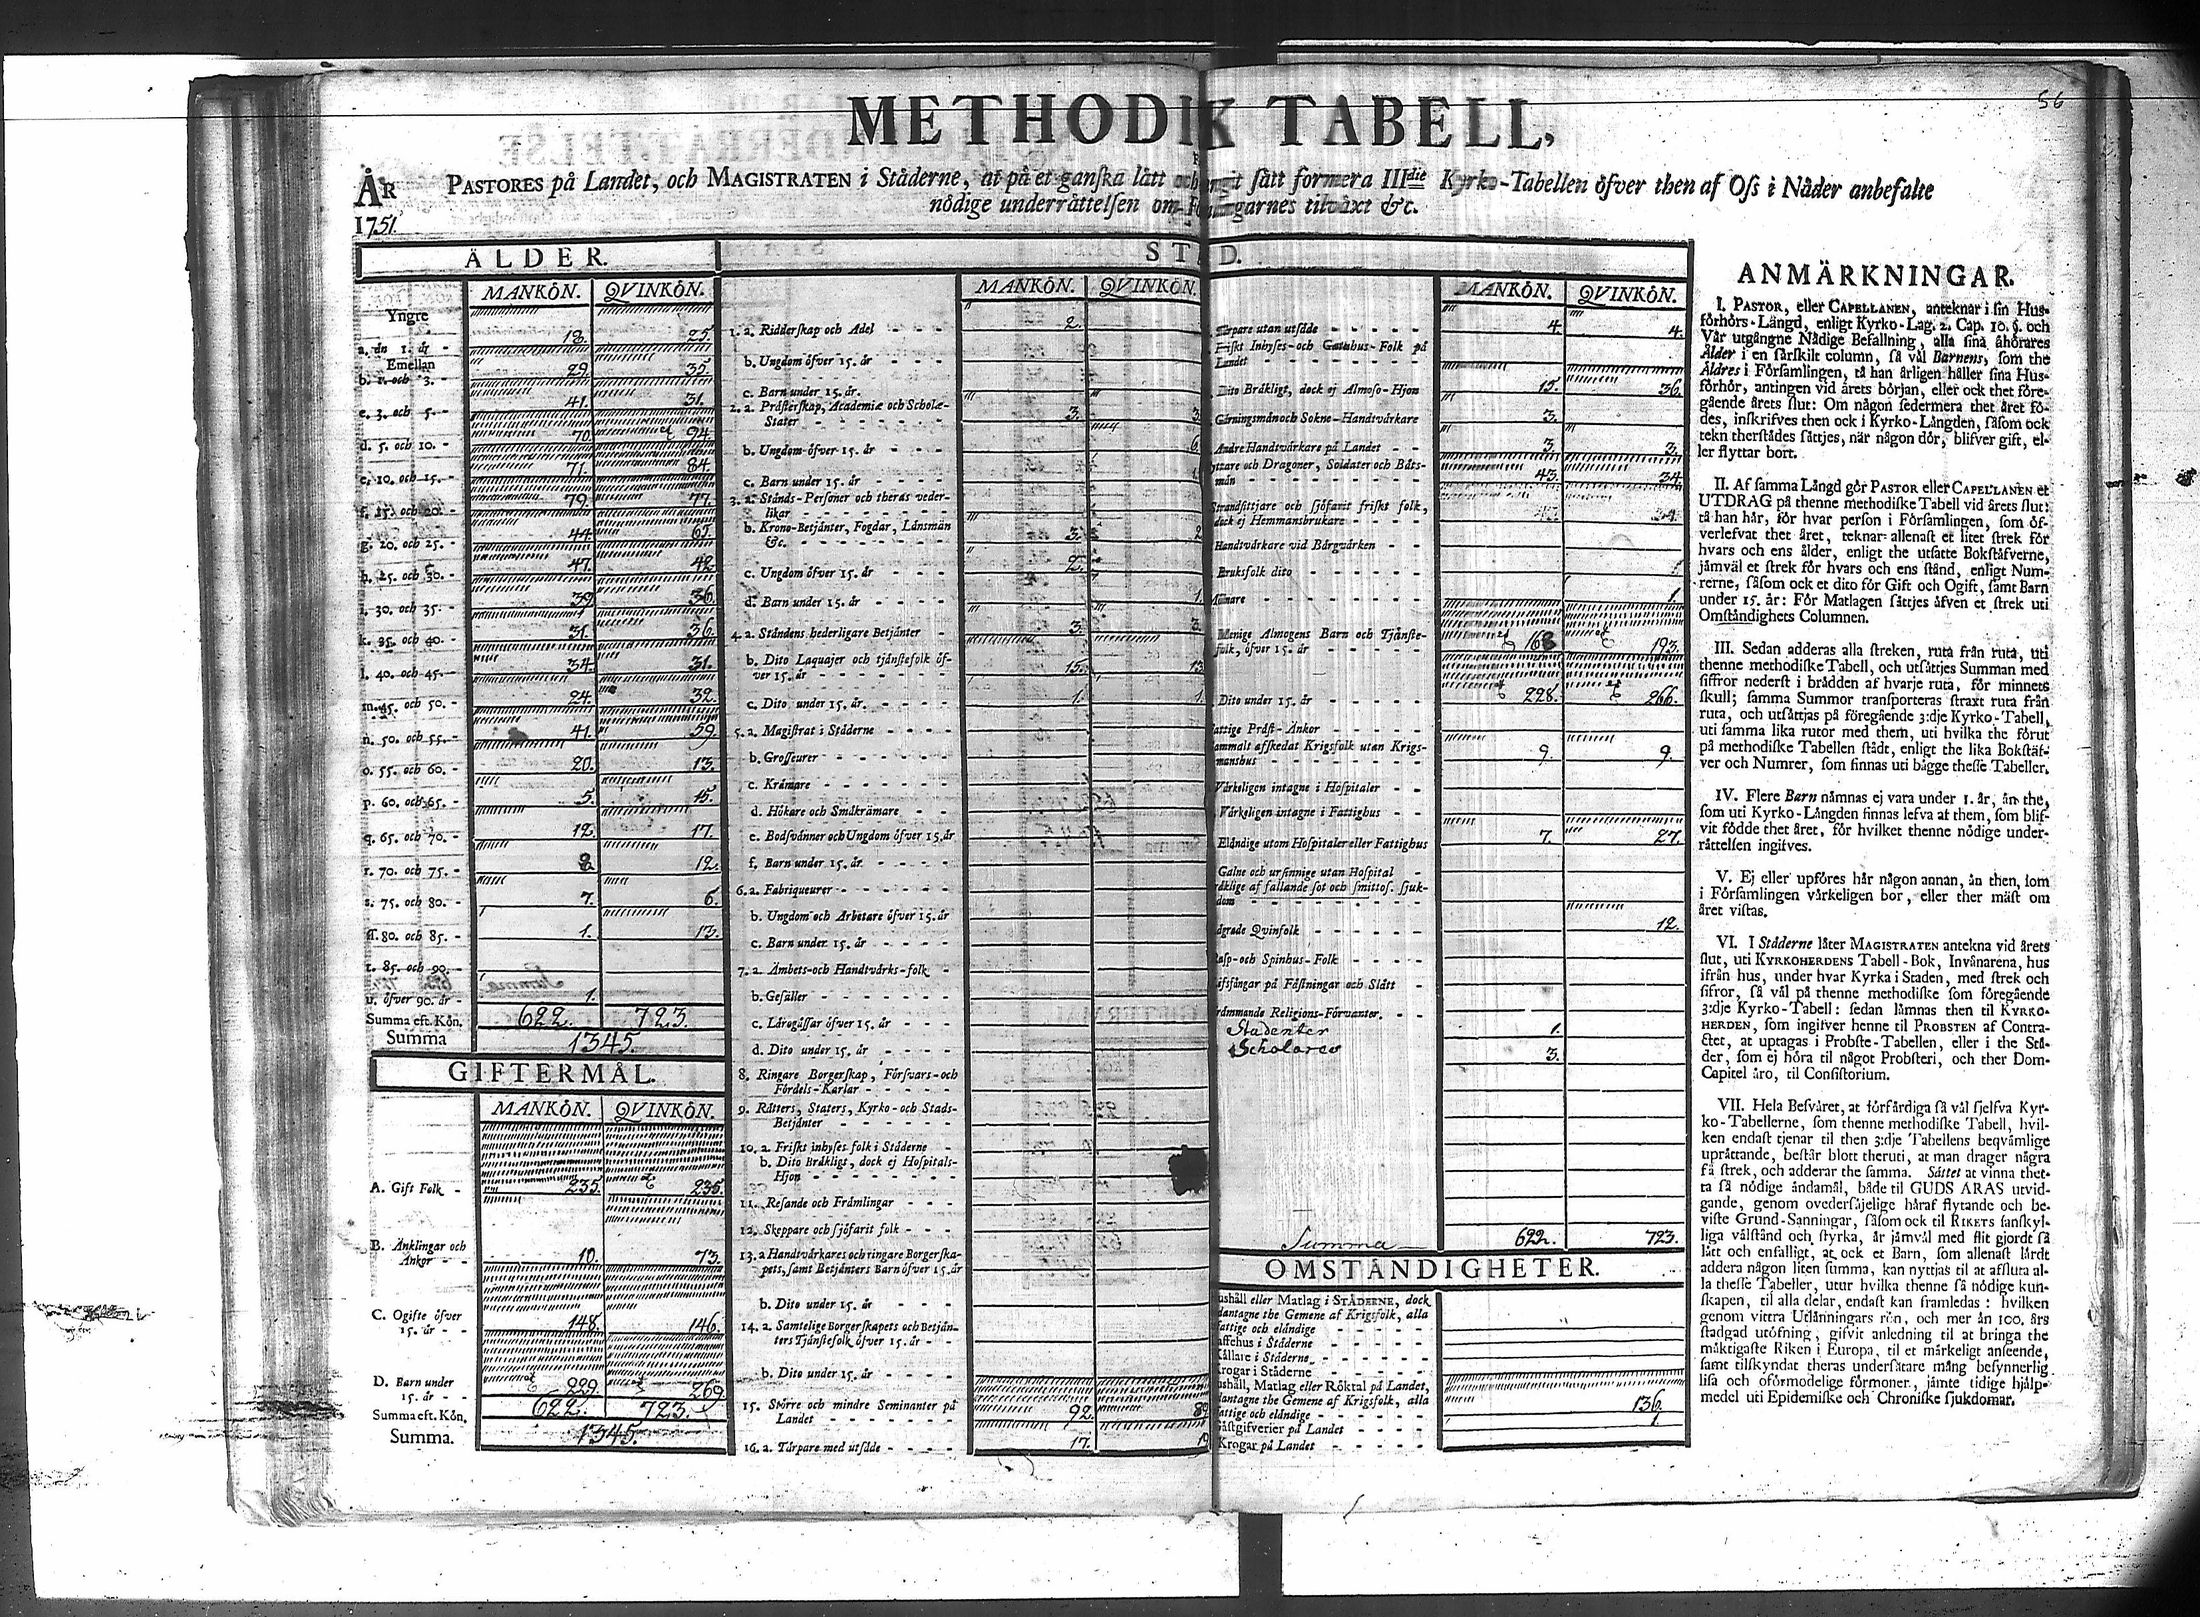 56
METHODIK TABELL,
ÅR 1751.
PASTORES på Landet, och MAGISTRATEN i Städerne, at på et ganska lätt och sätt formera IIIdie Kyrko-Tabellen öfver then af Oss i Nåder anbefalte
nödige underrättelsen om garnes tilväxt &c.
ÅLDER.
MANKÖN. QVINKÖN.
Yngre
a. än 1. år - 18. 25.
Emellan
b. 1. och 3. - 29. 35.
c. 3. och 5. - 41. 31.
d. 5. och 10. - 70. 94.
e. 10. och 15. - 71. 84.
f. 15. och 20. - 79. 77.
g. 20. och 25. - 44. 65.
h. 25. och 30. - 47. 42.
i. 30. och 35. - 39. 36.
k. 35. och 40. - 31. 36.
l. 40. och 45. - 34. 31.
m. 45. och 50. - 24. 32.
n. 50. och 55. - 41. 59.
o. 55. och 60. - 20. 13.
p. 60. och 65. - 5. 15.
q. 65. och 70. - 12. 17.
r. 70. och 75. - 8. 12.
s. 75. och 80. - 7. 6.
ss. 80. och 85. - 1. 13.
t. 85. och 90. -
u. öfver 90. år - 1.
Summa eft. Kön. 622. 723.
Summa 1345.
GIFTERMÅL.
MANKÖN. QVINKÖN.
A. Gift Folk - 235. 235.
B. Änklingar och
Änkor - - 10. 73.
C. Ogifte öfver
15. år - - 148. 146.
D. Barn under
15. år - - 229. 269.
Summa eft. Kön. 622. 723.
Summa. 1345.
STÅND.
MANKÖN. QVINKÖN.
1. a. Ridderskap och Adel - - - - 2.
b. Ungdom öfver 15. år
c. Barn under 15. år.
2. a. Prästerskap, Academiæ och Scholæ-
Stater - - - - - - - 3. 3.
b. Ungdom öfver 15. år - - - 6.
c. Barn under 15. år - - - -
3. a. Stånds-Personer och theras veder-
likar - - - - - - - -
b. Krono-Betjänter, Fogdar, Länsmän
&c. - - - - - - - - 3. 2
c. Ungdom öfver 15. år - - - 2.
d. Barn under 15. år - - - - 1.
4. a. Ståndens hederligare Betjänter - 3. 3.
b. Dito Laquajer och tjänstefolk öf-
ver 15. år - - - - - - 15. 13
c. Dito under 15. år. - - - - 1. 1.
5. a. Magistrat i Städerne - - - -
b. Grosseurer - - - - - -
c. Krämare - - - - - -
d. Hökare och Småkrämare - - -
e. Bodsvänner och Ungdom öfver 15. år
f. Barn under 15. år. - - - -
6. a. Fabriqueurer - - - - - -
b. Ungdom och Arbetare öfver 15. år
c. Barn under 15. år - - - -
7. a. Ämbets-och Handtvärks-folk -
b. Gesäller - - - - - - -
c. Lärogåssar öfver 15. år - - -
d. Dito under 15. år - - - -
8. Ringare Borgerskap, Försvars-och
Fördels-Karlar - - - - -
9. Rätters, Staters, Kyrko-och Stads-
Betjänter - - - - - -
10. a. Friskt inhyses folk i Städerne -
b. Dito Bräkligt, dock ej Hospitals-
Hjon - - - - - - - -
11. Resande och Främlingar - - -
12. Skeppare och sjöfarit folk - - -
13. a Handtvärkares och ringare Borgerska-
pets, samt Betjänters Barn öfver 15. år
b. Dito under 15. år - - -
14. a. Samtelige Borgerskapets och Betjän-
ters Tjänstefolk öfver 15. år - -
b. Dito under 15. år - - - -
15. Större och mindre Seminanter på
Landet - - - - - - - 92. 89
16. a. Tärpare med utsäde - - - - 17. 19
MANKÖN. QVINKÖN.
utan utsäde - - - - - 4. 4.
Friskt Inhyses-och Gatuhus-Folk på
Landet - - - - - - -
Dito Bräkligt, dock ej Almoso-Hjon 15. 36.
Gärningsmän och Sokne-Handtvärkare 3.
Andre Handtvärkare på Landet - - 3. 3.
och Dragoner, Soldater och Båts-
män - - - - - - - - 43. 34.
Strandsittjare och sjöfarit friskt folk,
dock ej Hemmansbrukare - - -
Handtvärkare vid Bärgvärken - -
Bruksfolk dito - - - - -
- - - - - - - 1.
Menige Almogens Barn och Tjänste-
folk, öfver 15. år - - - - - 168 193.
Dito under 15. år - - - - 228. 266.
Präst-Änkor - - - -
afskedat Krigsfolk utan Krigs-
manshus - - - - - - 9. 9.
Värkeligen intagne i Hospitaler - -
Värkeligen intagne i Fattighus - -
Eländige utom Hospitaler eller Fattighus 7. 27.
Galne och ursinnige utan Hospital -
af fallande sot och smittos. sjuk-
dom - - - - - - - -
Qvinfolk - - - - - 12.
och Spinhus-Folk - - - -
på Fästningar och Slått -
Religions-Förvanter. - -
Studenter 1.
Scholares 3.
Summa 622. 723.
OMSTÄNDIGHETER.
eller Matlag i STÄDERNE, dock
the Gemene af Krigsfolk, alla
och eländige - - - - -
i Städerne - - - -
Källare i Städerne - - - - -
Krogar i Städerne - - - - -
Matlag eller Röktal på Landet,
the Gemene af Krigsfolk, alla
och eländige - - - - - 136.
på Landet - - - - 1.
Krogar på Landet - - - - -
ANMÄRKNINGAR.
I. PASTOR, eller CAPELLANEN, anteknar i sin Hus-
förhörs-Längd, enligt Kyrko-Lag. 2. Cap. 10. §. och
Vår utgångne Nådige Befallning, alla sina åhörares
Ålder i en särskilt column, så väl Barnens, som the
Äldres i Församlingen, tå han årligen håller sina Hus-
förhör, antingen vid årets början, eller ock thet före-
gående årets slut: Om någon sedermera thet året fö-
des, inskrifves then ock i Kyrko-Längden, såsom ock
tekn therstådes sättjes, när någon dör, blifver gift, el-
ler flyttar bort.
II. Af samma Längd gör PASTOR eller CAPELLANEN et
UTDRAG på thenne methodiske Tabell vid årets slut:
tå han här, för hvar person i Församlingen, som öf-
verlefvat thet året, teknar allenast et litet strek för
hvars och ens ålder, enligt the utsatte Bokstäfverne,
jämväl et strek för hvars och ens stånd, enligt Num-
rerne, såsom ock et dito för Gift och Ogift, samt Barn
under 15. år: För Matlagen sättjes äfven et strek uti
Omständighets Columnen.
III. Sedan adderas alla streken, ruta från ruta, uti
thenne methodiske Tabell, och utsättjes Summan med
siffror nederst i brädden af hvarje ruta, för minnets
skull; samma Summor transporteras straxt ruta från
ruta, och utsättjas på föregående 3:dje Kyrko-Tabell,
uti samma lika rutor med them, uti hvilka the förut
på methodiske Tabellen städt, enligt the lika Bokstäf-
ver och Numrer, som finnas uti bägge thesse Tabeller.
IV. Flere Barn nämnas ej vara under 1. år, än the,
som uti Kyrko-Längden finnas lefva af them, som blif-
vit födde thet året, för hvilket thenne nödige under-
rättelsen ingifves.
V. Ej eller upföres här någon annan, än then, som
i Församlingen värkeligen bor, eller ther mäst om
året vistas.
VI. I Städerne låter MAGISTRATEN antekna vid årets
slut, uti KYRKOHERDENS Tabell-Bok, Invånarena, hus
ifrån hus, under hvar Kyrka i Staden, med strek och
sifror, så väl på thenne methodiske som föregående
3:dje Kyrko-Tabell: sedan lämnas then til KYRKO-
HERDEN, som ingifver henne til PROBSTEN af Contra-
ctet, at uptagas i Probste-Tabellen, eller i the Stä-
der, som ej höra til något Probsteri, och ther Dom-
Capitel äro, til Consistorium.
VII. Hela Besväret, at förfärdiga så väl sjelfva Kyr-
ko-Tabellerne, som thenne methodiske Tabell, hvil-
ken endast tjenar til then 3:dje Tabellens beqvämlige
uprättande, består blott theruti, at man drager några
få strek, och adderar the samma. Sättet at vinna thet-
ta så nödige ändamål, både til GUDS ÄRAS utvid-
gande, genom ovedersäjelige häraf flytande och be-
viste Grund-Sanningar, såsom ock til RIKETS sanskyl-
liga välstånd och styrka, är jämväl med flit gjordt så
lätt och enfalligt, at ock et Barn, som allenast lärdt
addera någon liten summa, kan nyttjas til at afsluta al-
la thesse Tabeller, utur hvilka thenne så nödige kun-
skapen, til alla delar, endast kan framledas: hvilken
genom vittra Utlänningars rön, och mer än 100. års
stadgad utöfning, gifvit anledning til at bringa the
mäktigaste Riken i Europa, til et märkeligt anseende,
samt tilskyndat theras undersåtare mång besynnerlig
lisa och oförmodelige förmoner, jämte tidige hjälp-
medel uti Epidemiske och Chroniske sjukdomar.